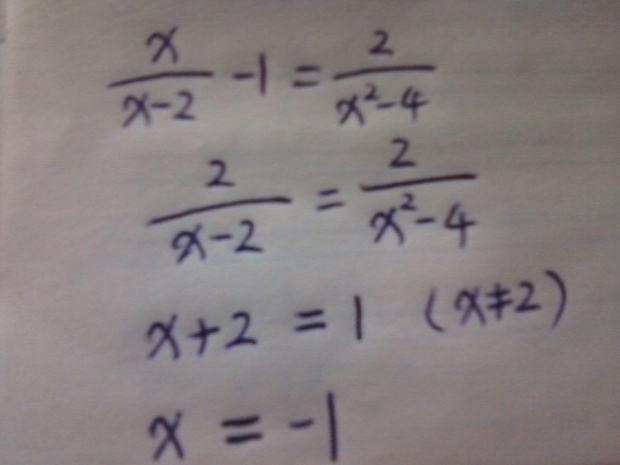 x/(x-2) -1 = 2/(x²-4)
2/(x-2) = 2/(x²-4)
x+2 = 1 (x≠2)
x = -1